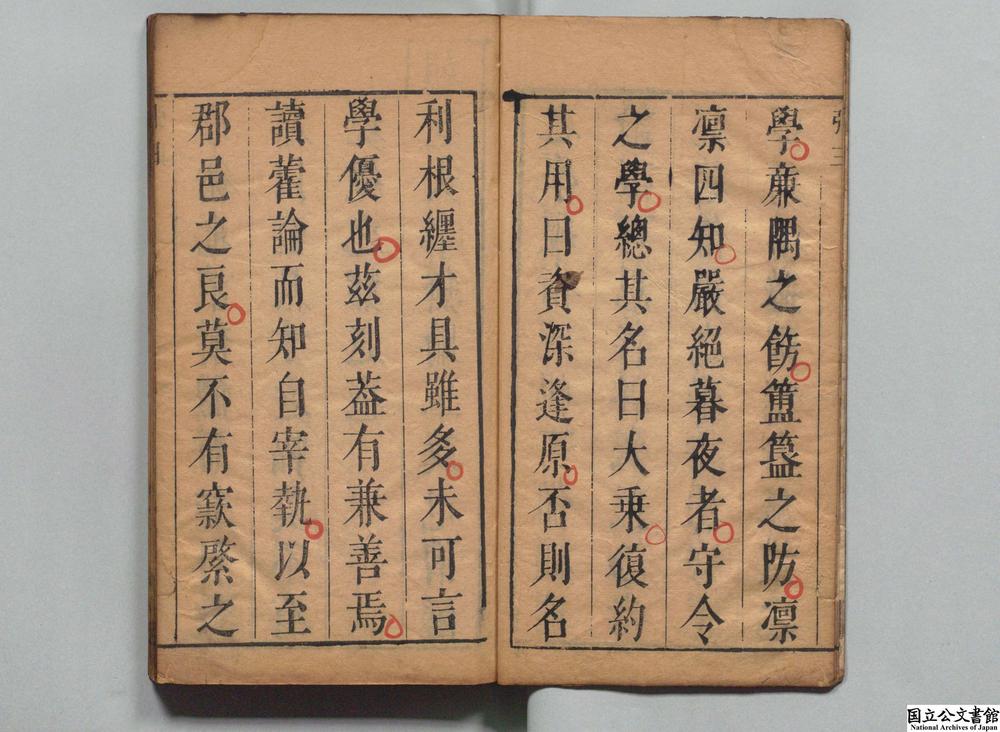 學廉隅之飭簠簋之防凛
凛四知嚴絕暮夜者守令
之學總其名曰大乘復約
其用曰資深逢原否則名
利根纏才具雖多未可言
學優也茲刻葢有兼善焉
讀藿論而知自宰執以至
郡邑之良莫不有窾綮之
国立公文書館
National Archives of Japan